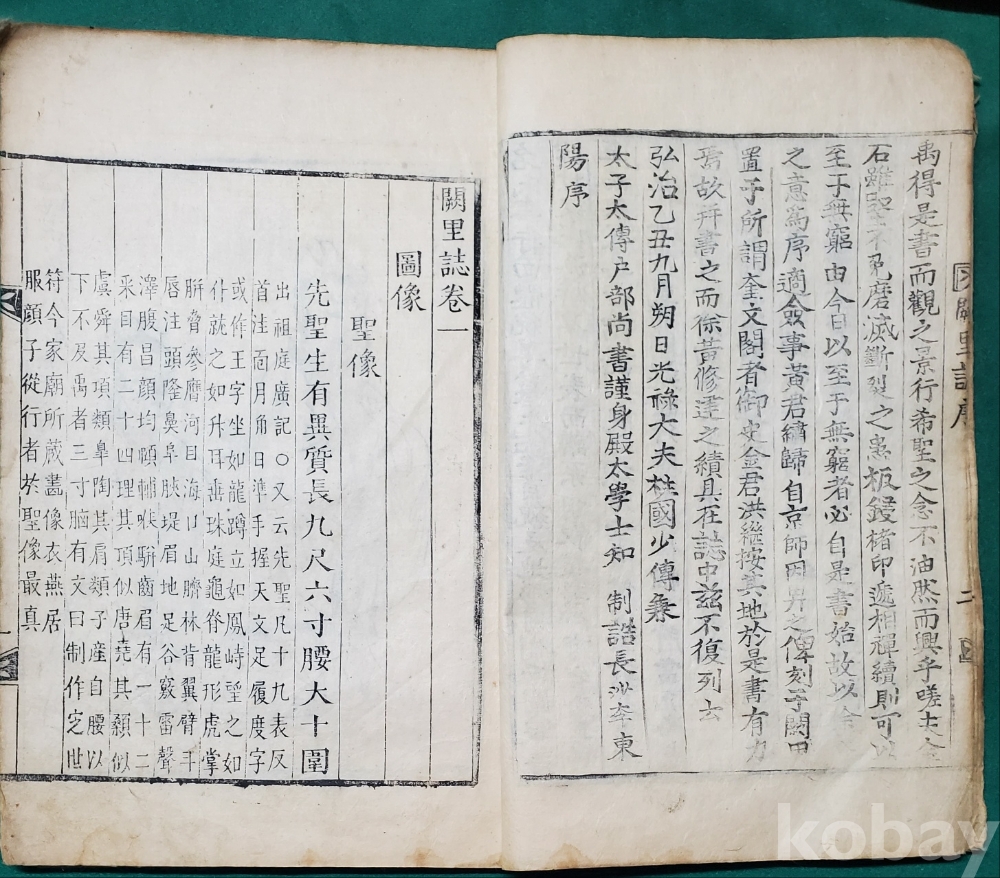 禹得是書而觀之景行希聖之念不油然而興乎嗟夫金
石雖堅不免磨滅斷裂之患板鋟楮印遞相禪續則可以
至于無窮由今日以至于無窮者必自是書始故以余
之意爲序適僉事黃君繡歸自京師因畀之俾刻于闕里
置于所謂奎文閣者御史金君洪継按其地於是書有力
焉故幷書之而徐黃修建之績具在誌中茲不復列云
弘治乙丑九月朔日光祿大夫柱國少傅兼
太子太傅戶部尚書謹身殿大學士知 制誥長沙李東
陽序
闕里誌序
二
闕里誌卷一
圖像
聖像
先聖生有異質長九尺六寸腰大十圍
出祖庭廣記○又云先聖凡十九表反
首洼面月角日準手握天文足履度字
或作王字坐如龍蹲立如鳳峙望之如
仆就之如升耳垂珠庭龜脊龍形虎掌
胼脅參膺河目海口山臍林背翼臂斗
唇注頭隆鼻阜脥堤眉地足谷竅雷聲
澤腹昌顏均頤輔喉駢齒眉有一十二
采目有二十四理其頂似唐堯其顙似
虞舜其項類皋陶其肩類子產自腰以
下不及禹者三寸腦有文曰制作定世
符今家廟所藏畫像衣燕居
服顏子從行者於聖像最真
一
kobay